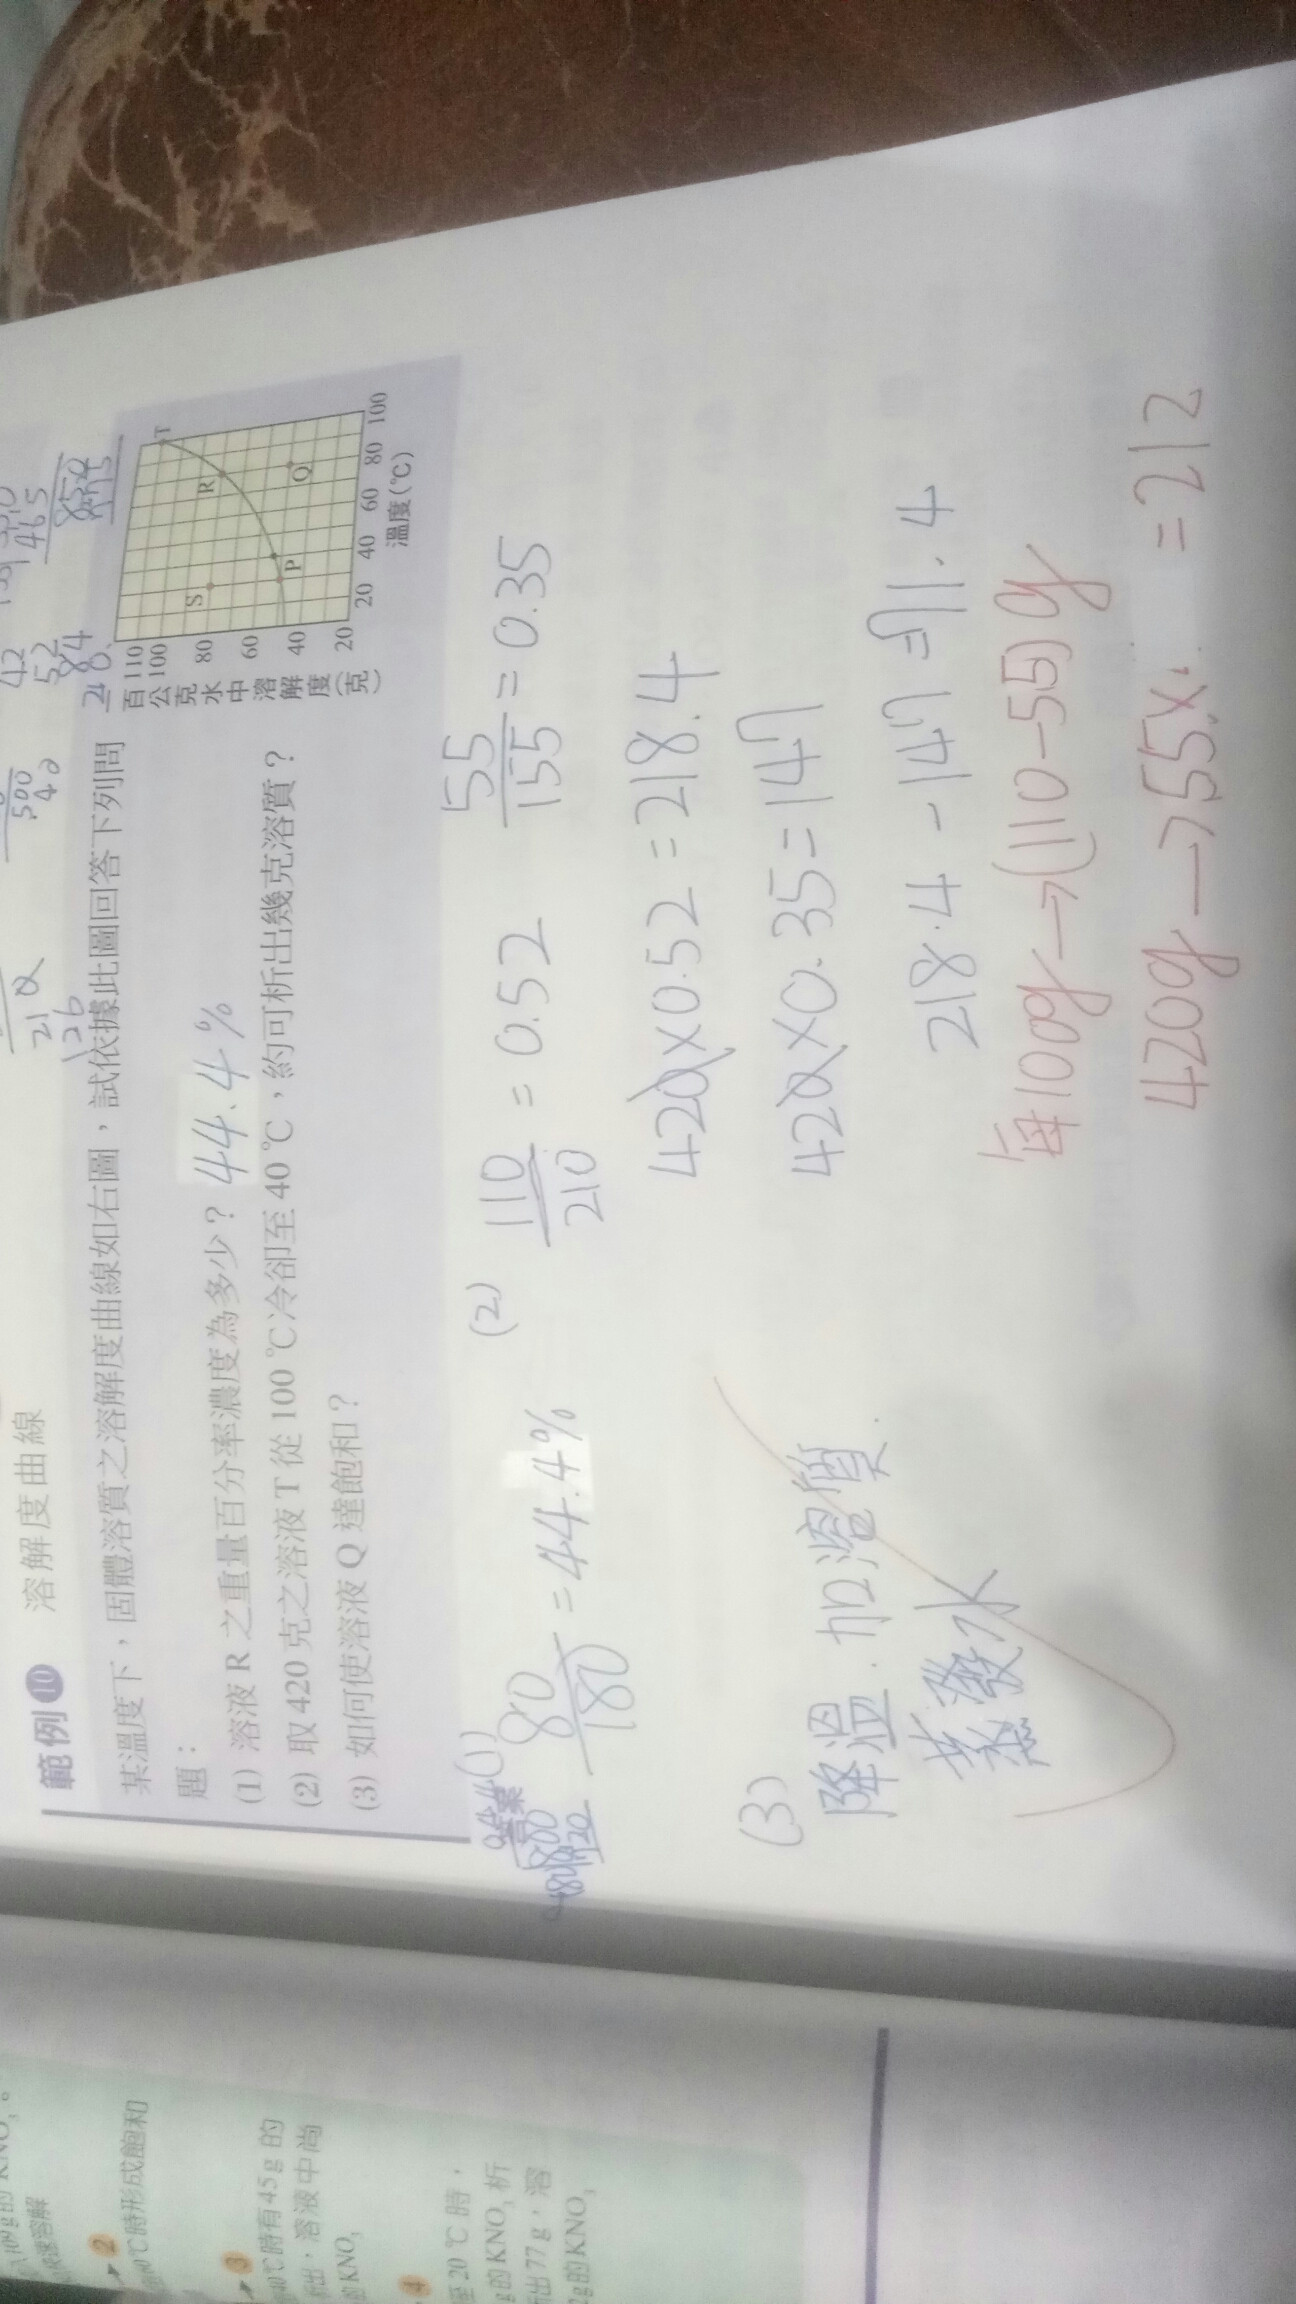 範例10 溶解度曲線
某溫度下，固體溶質之溶解度曲線如右圖，試依據此圖回答下列問
題：
(1) 溶液 R 之重量百分率濃度為多少？ 44.4%
(2) 取 420 克之溶液 T 從 100 ℃冷卻至 40 ℃，約可析出幾克溶質？
(3) 如何使溶液 Q 達飽和？
百公克水中溶解度(克)
110
100
80
60
40
20
20 40 60 80 100
溫度(℃)
S
P
R
Q
T
答案
(1) 80/180 = 44.4%
(2) 110/210 = 0.52 55/155 = 0.35
420×0.52=218.4
420×0.35=147
218.4-147=71.4
每100g→(110-55)g
420g→55× =212
(3)
降溫.加溶質.
蒸發水
2
℃時形成飽和
3
℃時有45g的
出，溶液中尚
KNO3
4
至 20 ℃ 時，
g的KNO3析
出77g，溶
g的KNO3